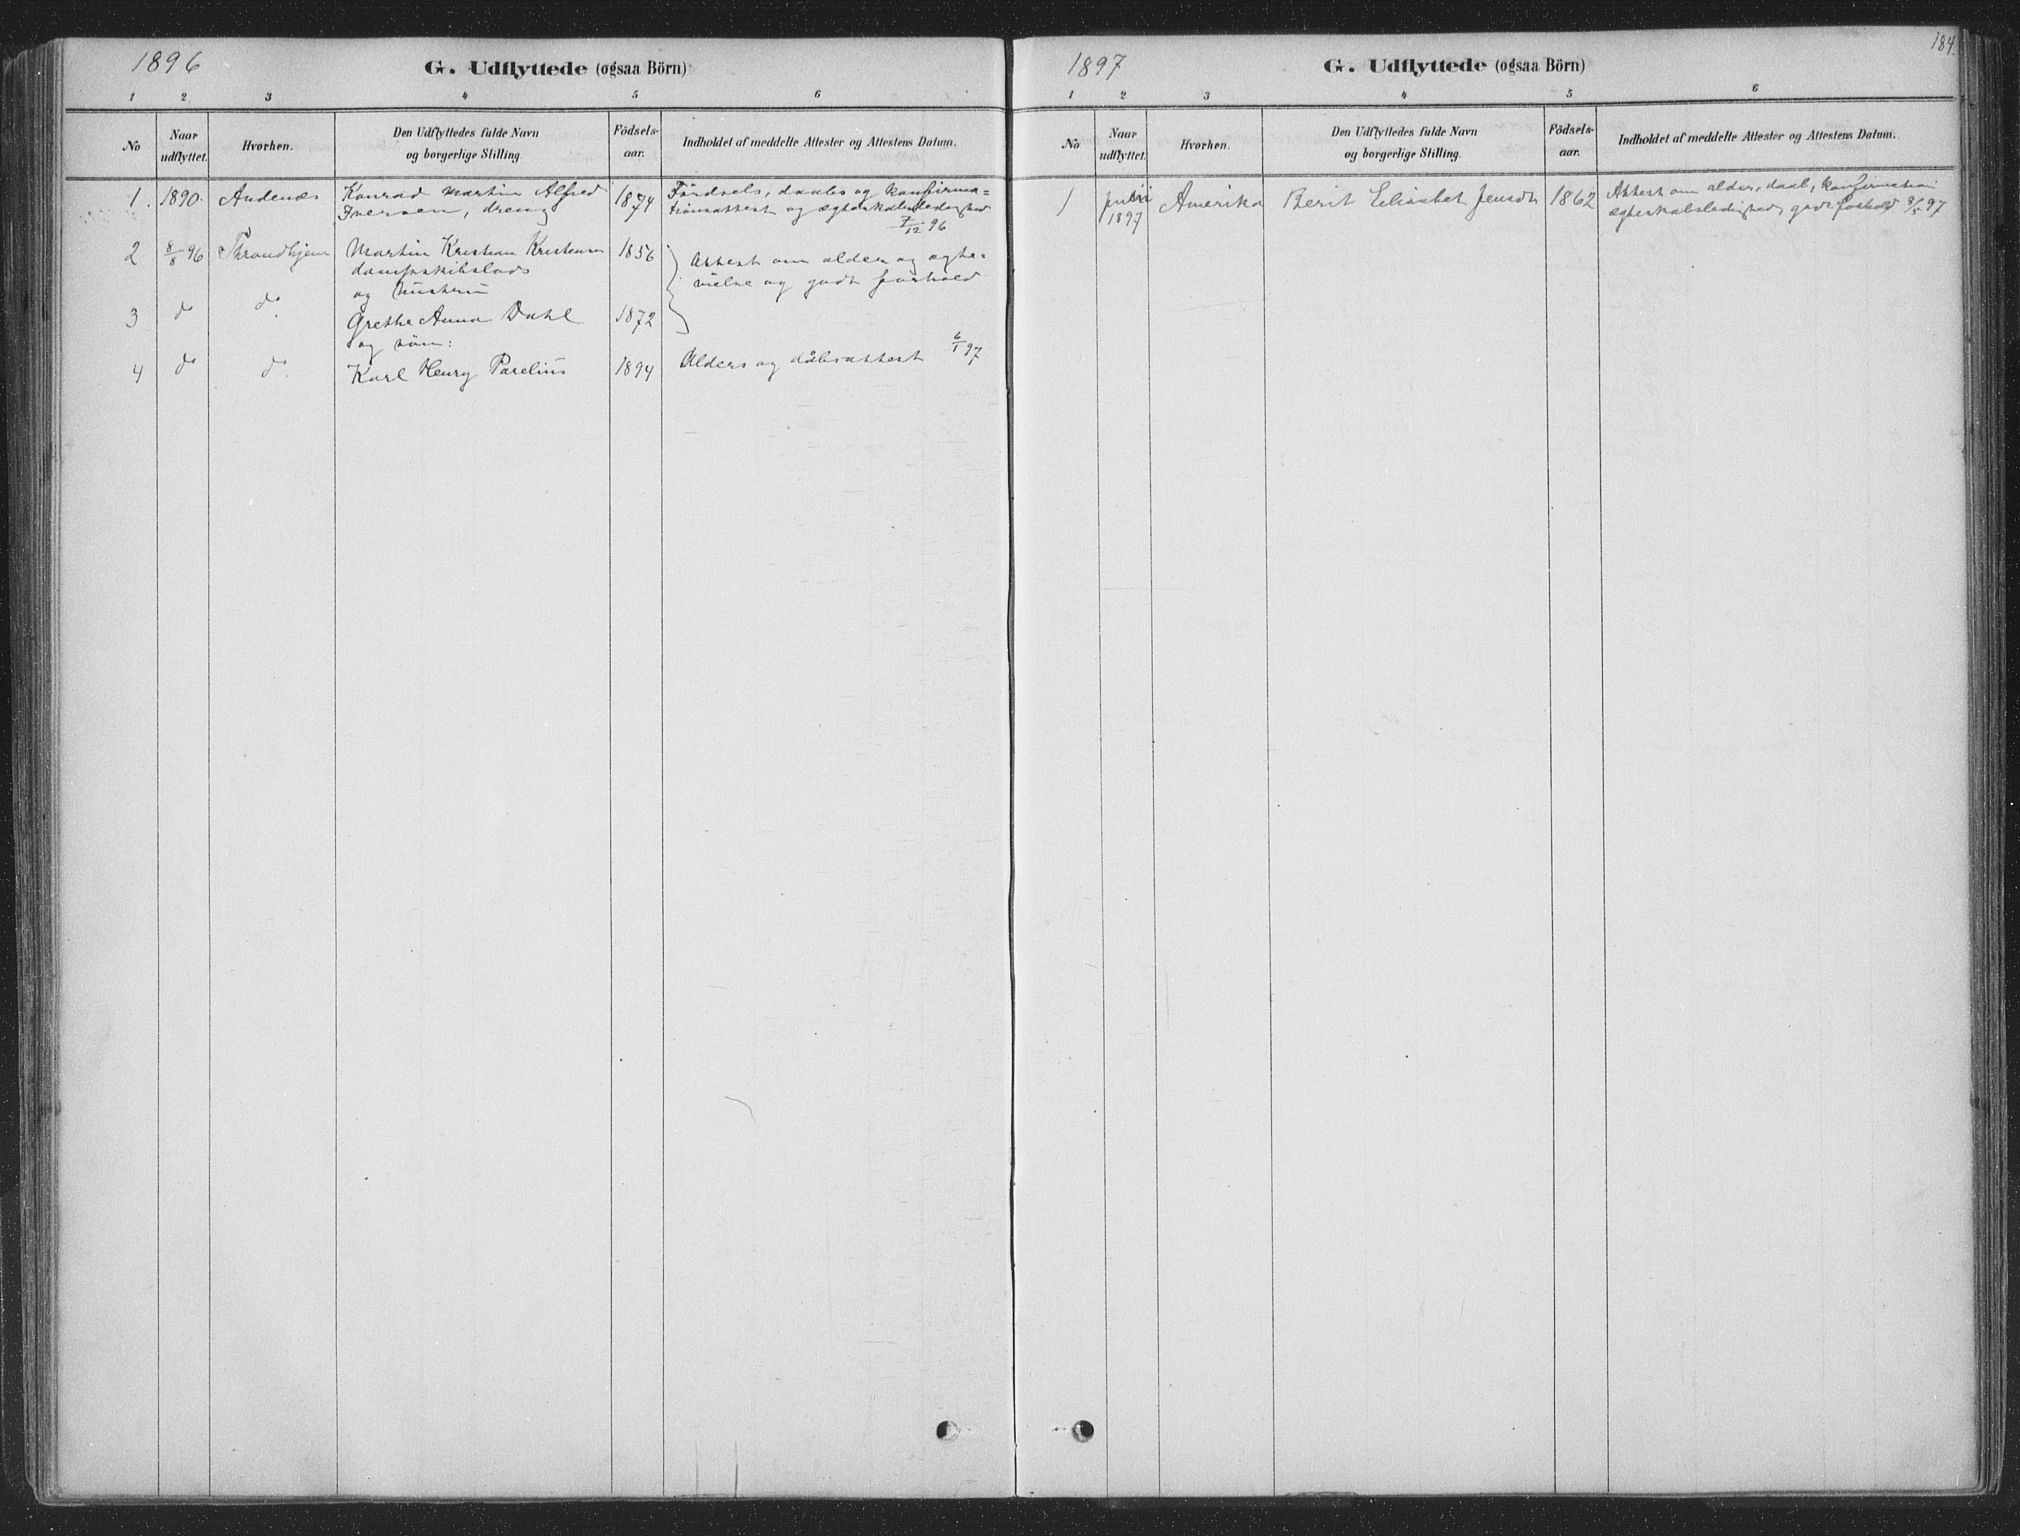 1896
G. Udflyttede (ogsaa Börn)
1 2 3 4 5 6
No
Naar udflyttet.
Hvorhen.
Den Udflyttedes fulde Navn
og borgerlige Stilling.
Födsels-
aar.
Indholdet af meddelte Attester og Attestens Datum.
1. 1890. Andenæs Konrad Martin Alfred 1874 Fördsels, daabs og konfirma-
Iversen, dreng tionsattest og ægteskabsledighed
7/12 96
2 8/8 96 Throndhjem Martin Kristian Kristensen 1856 Attest om alder og egte-
dampskibslods vielse og godt forhold
og hustru
3 do do. Grethe Anna Dahl 1872
og sön:
4 do do. Karl Henry Parelius 1894 Alders og dåbsattest 6/1 97
1897
184.
G. Udflyttede (ogsaa Börn)
1 2 3 4 5 6
No
Naar udflyttet.
Hvorhen.
Den Udflyttedes fulde Navn
og borgerlige Stilling.
Födsels-
aar.
Indholdet af meddelte Attester og Attestens Datum.
1 1897 Amerika Berit Elisabet Jensdt 1862 Attest om alder, daab, konfirmation
ægteskabsledighed, godt forhold 8/5 97